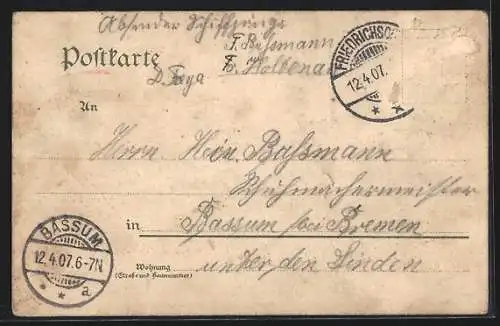 Absender Schiffsjunge
Postkarte F. Bassmann
An
FRIEDRICHSO
12.4.07.
Herrn Hein. Bassmann
Schuhmachermeister
in Bassum bei Bremen
BASSUM
12.4.07.6-7N
a
Wohnung unter den Linden
(Straße und Hausnummer)